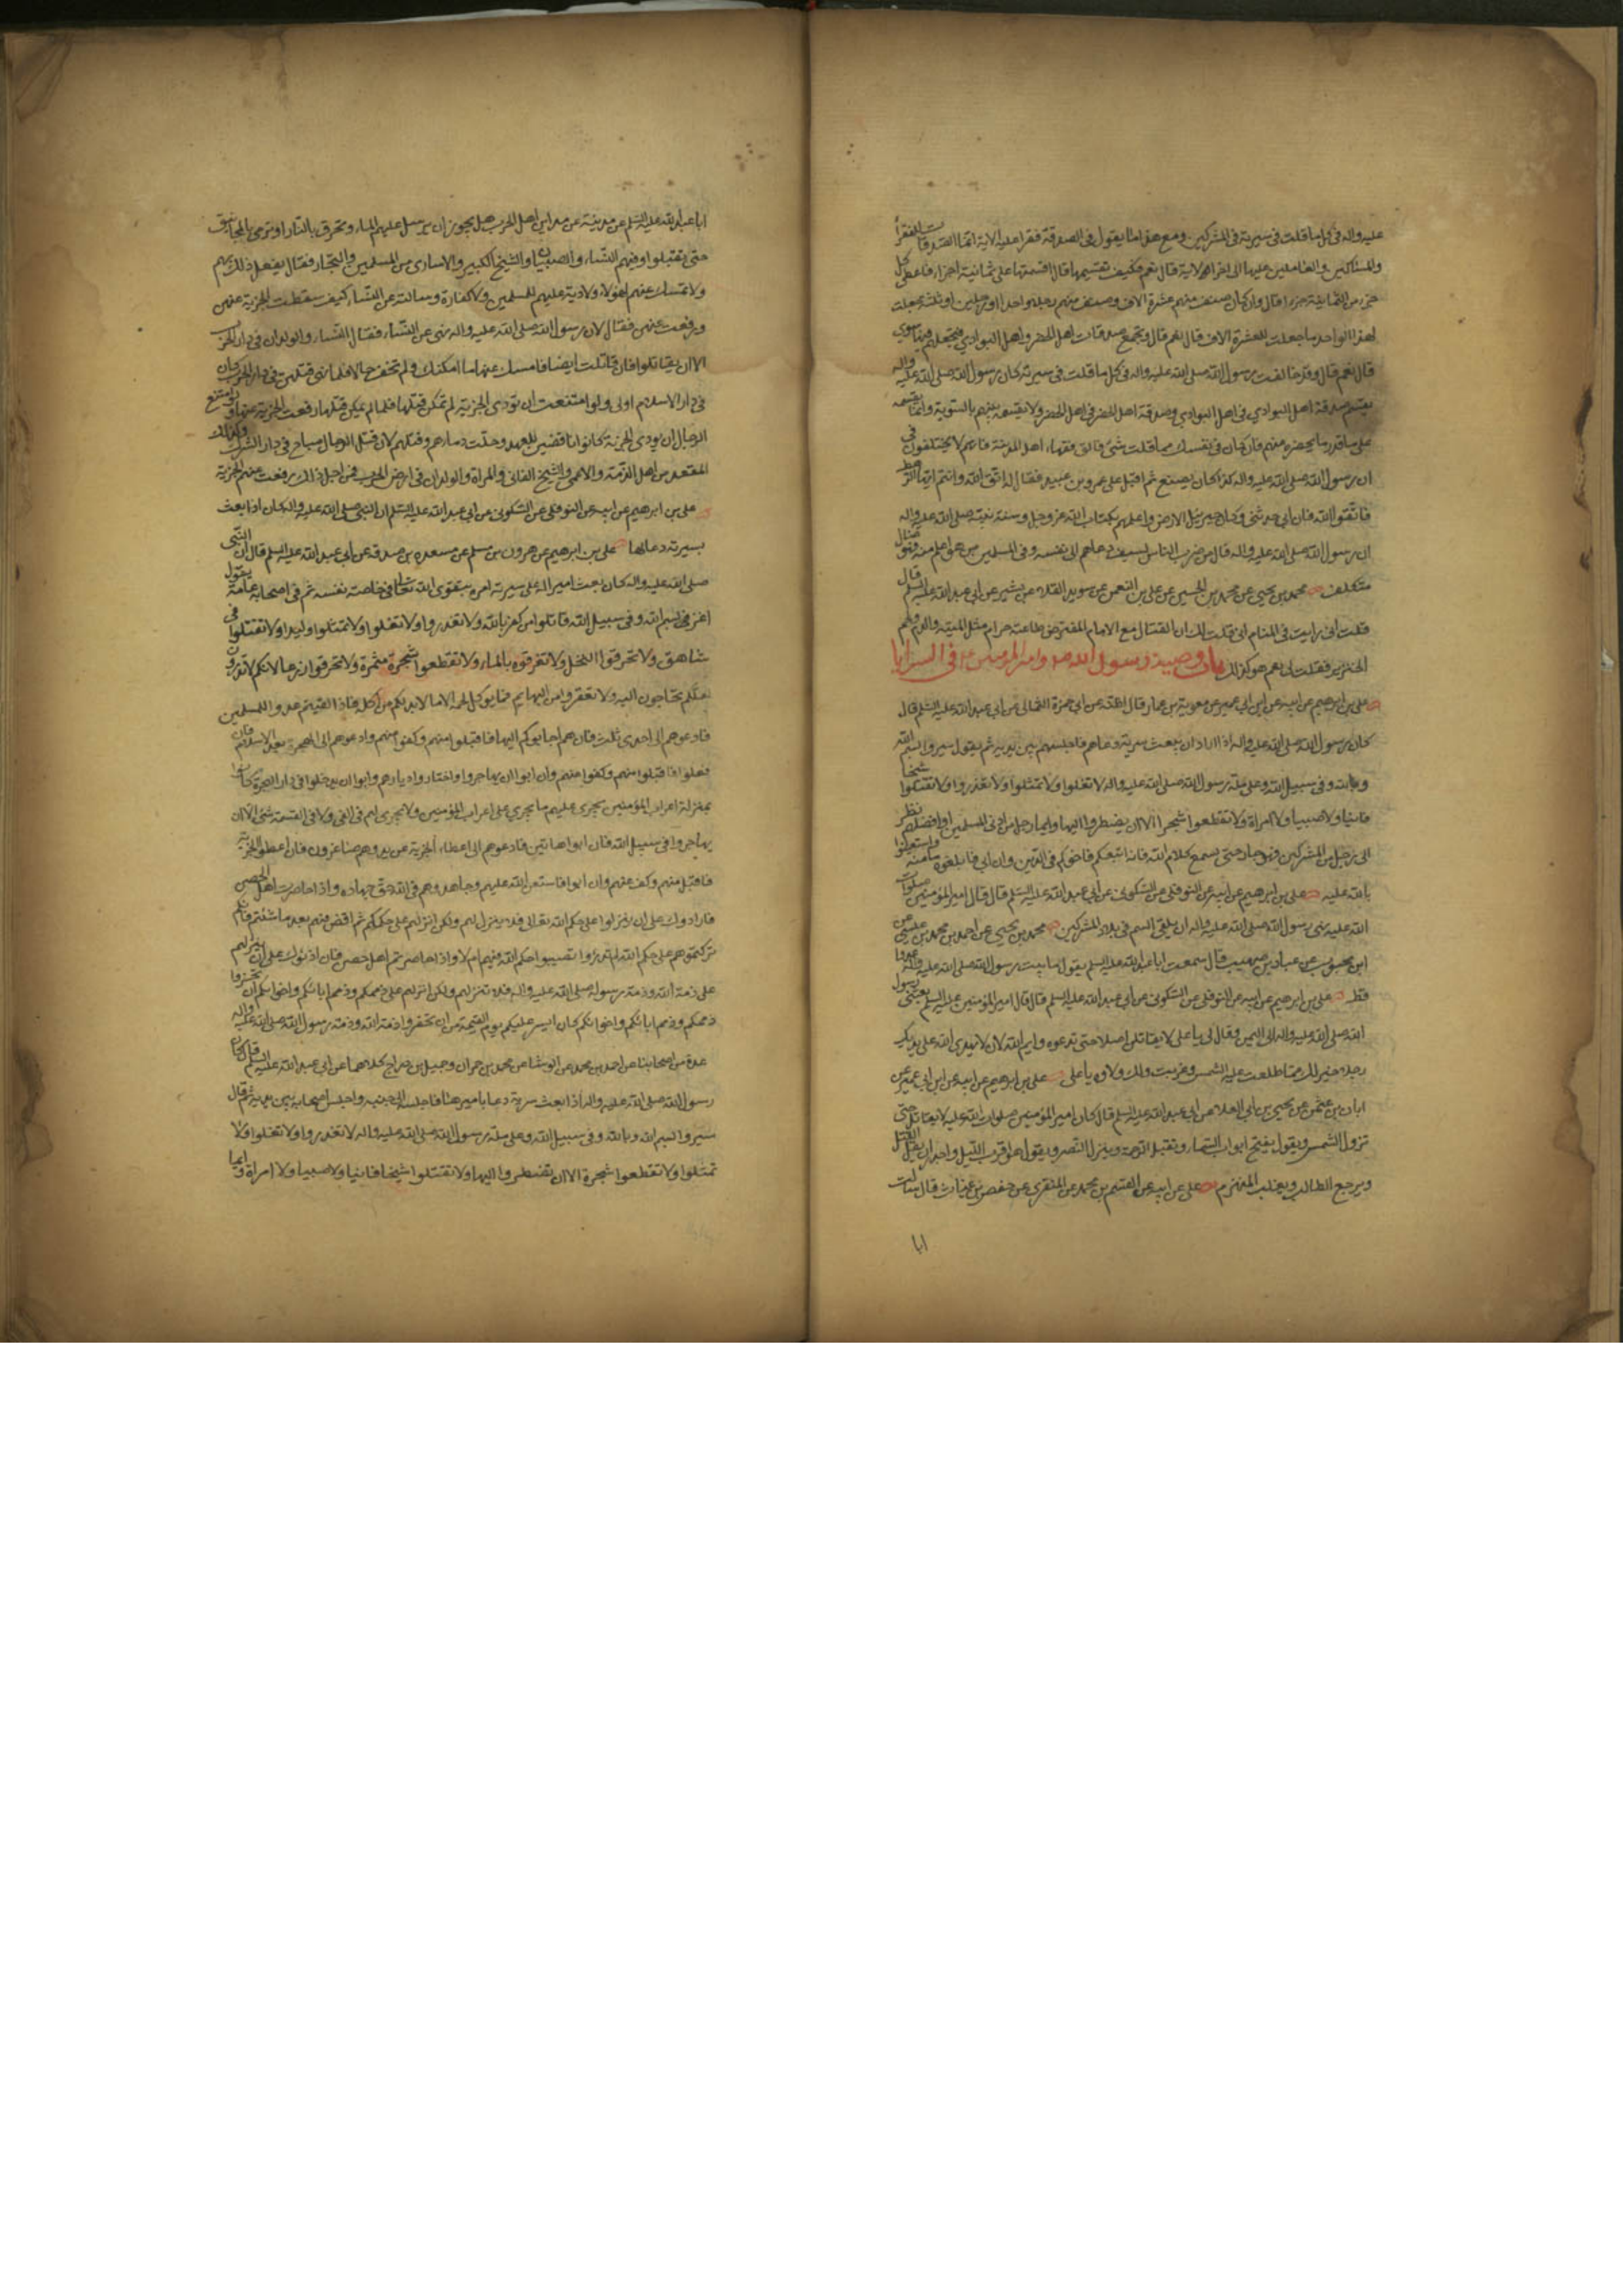 عليه واله في كل ما قلت في سيرته في المشركين ومع هذا ما يقول في الصدقة فقرا عليه الاية انما الصدقات للفقراء
والمساكين والعاملين عليها الى اخر الاية قال نعم فكيف تقسمها قال اقسمها على ثمانية اجزاء فاعطي كل
جزء من الثمانية جزءا قال وان كان صنف منهم عشرة الاف وصنف منهم رجلا واحدا او رجلين او ثلثة جعلت
لهذا الواحد ما جعلت للعشرة الاف قال نعم قال وتجمع صدقات اهل الحضر واهل البوادي فتجعلهم فيها سوى
قال نعم قال وقد خالفت رسول الله صلى الله عليه واله في كل ما قلت في سيرته كان رسول الله صلى الله عليه واله
يقسم صدقة اهل البوادي في اهل البوادي وصدقة اهل الحضر في اهل الحضر ولا يقسمه بينهم بالسوية وانما يقسمه
على ما قدر ما يحضره منهم فان كان في نفسك مما قلت شئ فالق فقهاء اهل المدينة فانهم لا يختلفون في
ان رسول الله صلى الله عليه واله كذا كان يصنع ثم اقبل على عمرو بن عبيد فقال له اتق الله وانتم ايها الرهط
فاتقوا الله فان ابي حدثني وكان خير اهل الارض واعلمهم بكتاب الله عز وجل وسنة نبيه صلى الله عليه واله
ان رسول الله صلى الله عليه واله قال من ضرب الناس بسيفه ودعاهم الى نفسه وفي المسلمين من هو اعلم منه فهو ضال
متكلف محمد بن يحيى عن محمد بن الحسين عن علي بن النعمن عن سويد القلاء عن بشير عن ابي عبد الله عليه السلم قال
قلت اني رايت في المنام اني قلت لك ان القتال مع الامام المفترض طاعته حرام مثل الميتة والدم ولحم
الخنزير فقلت لي نعم هو كذلك باب وصية رسول الله صلى وامير المؤمنين عل في السرايا
علي بن ابرهيم عن ابيه عن ابن ابي عمير عن معوية بن عمار قال اظنه عن ابي حمزة الثمالي عن ابي عبد الله عليه السلم قال
كان رسول الله صلى الله عليه واله اذا اراد ان يبعث سرية دعاهم فاجلسهم بين يديه ثم يقول سيروا بسم الله
وبالله وفي سبيل الله وعلى ملة رسول الله صلى الله عليه واله لا تغلوا ولا تمثلوا ولا تغدروا ولا تقتلوا شيخا
فانيا ولا صبيا ولا امراة ولا تقطعوا شجرا الا ان يضطروا اليها وايما رجل من ادنى المسلمين او افضلهم نظر
الى رجل من المشركين فهو جار حتى يسمع كلام الله فان اتبعكم فاخوكم في الدين وان ابى فابلغوه مامنه واستعينوا
بالله عليه علي بن ابرهيم عن ابيه عن النوفلي عن السكوني عن ابي عبد الله عليه السلم قال قال امير المؤمنين صلوات
الله عليه نهى رسول الله صلى الله عليه واله ان يلقى السم في بلاد المشركين محمد بن يحيى عن احمد بن محمد بن عيسى عن
ابن محبوب عن عباد بن صهيب قال سمعت ابا عبد الله عليه السلم يقول ما بيت رسول الله صلى الله عليه واله عدوا
قط علي بن ابرهيم عن ابيه عن النوفلي عن السكوني عن ابي عبد الله عليه السلم قال قال امير المؤمنين عليه السلم بعثني رسول
الله صلى الله عليه واله الى اليمن وقال لي يا علي لا تقاتلن احدا حتى تدعوه وايم الله لان لا يهدي الله على يديك
رجلا خير لك مما طلعت عليه الشمس وغربت ولك ولاؤه يا علي علي بن ابرهيم عن ابيه عن ابن ابي عمير عن
ابان بن عثمن عن يحيى بن ابي العلا عن ابي عبد الله عليه السلم قال كان امير المؤمنين صلوات الله عليه لا يقاتل حتى
تزول الشمس ويقول يفتح ابواب السماء وتقبل الرحمة وينزل النصر ويقول هو اقرب الى الليل واجدر ان يقل القتل
ويرجع الطالب ويفلت المنهزم علي عن ابيه عن القسم بن محمد عن المنقري عن حفص بن غياث قال سالت
ابا
ابا عبد الله عليه السلم عن مدينة من مداين اهل الحرب هل يجوز ان يرسل عليهم الماء وتحرق بالنار او ترمى بالمجانيق
حتى يقتلوا وفيهم النساء والصبيان والشيخ الكبير والاسارى من المسلمين والتجار فقال يفعل ذلك بهم
ولا تمسك عنهم لهؤلاء ولا دية عليهم للمسلمين ولا كفارة وسالته عن النساء كيف سقطت الجزية عنهن
ورفعت عنهن فقال لان رسول الله صلى الله عليه واله نهى عن النساء فقتال النساء والولدان في دار الحرب
الا ان يقاتلوا فان قاتلت ايضا فامسك عنها ما امكنك ولم تخف خالا فلما نهى قتلهن في دار الحرب كان
في دار الاسلام اولى ولو امتنعت ان تؤدي الجزية لم تمكن قتلها فلما لم يمكن قتلها رفعت الجزية عنها ولو امتنع
الرجال ان يؤدي الجزية كانوا ناقضين للعهد وحلت دماؤهم وقتلهم لان قتل الرجال مباح في دار الشرك وكذلك
المقعد من اهل الذمة والاعمى والشيخ الفاني والمراة والولدان في ارض الحرب فمن اجل ذلك رفعت عنهم الجزية
علي بن ابرهيم عن ابيه عن النوفلي عن السكوني عن ابي عبد الله عليه السلم ان النبي صلى الله عليه واله كان اذا بعث
بسرية دعا لها علي بن ابرهيم عن هرون بن مسلم عن مسعدة بن صدقة عن ابي عبد الله عليه السلم قال ان النبي
صلى الله عليه واله كان بعث اميرا له على سرية امره بتقوى الله تعالى في خاصة نفسه ثم في اصحابه عامة يقول
اغز في بسم الله وفي سبيل الله قاتلوا من كفر بالله ولا تغدروا ولا تغلوا ولا تمثلوا وليدا ولا تقتلوا في
شاهق ولا تحرقوا النخل ولا تغرقوه بالماء ولا تقطعوا شجرة مثمرة ولا تحرقوا زرعا لانكم لا تدرون
لعلكم تحتاجون اليه ولا تعقروا من البهايم مما يوكل لحمه الا ما لابد لكم من اكله فاذا لقيتم عدو للمسلمين
فادعوهم الى احدى ثلث فان هم اجابوكم اليها فاقبلوا منهم وكفوا عنهم وادعوهم الى الهجرة بعد الاسلام فان
فعلوا فاقبلوا منهم وكفوا عنهم وان ابوا ان يهاجروا واختاروا ديارهم وابوا ان يدخلوا في دار الهجرة كانوا
بمنزلة اعراب المؤمنين يجري عليهم ما يجري على اعراب المؤمنين ولا يجري لهم في الفئ ولا في القسمة شئ الا ان
يهاجروا في سبيل الله فان ابوا هاتين فادعوهم الى اعطاء الجزية عن يد وهم صاغرون فان اعطوا الجزية
فاقبل منهم وكف عنهم وان ابوا فاستعن الله عليهم وجاهدوهم في الله حق جهاده واذا حاصرت اهل الحصن
فارادوك على ان ينزلوا على حكم الله تعالى فلا ينزل لهم ولكن انزلهم على حكمكم ثم اقض فيهم بعد ما شئتم فانكم
تركتموهم على حكم الله لم تدروا تصيبوا حكم الله فيهم ام لا واذا حاصرتم اهل حصن فان اذنوك على ان تنزلهم
على ذمة الله وذمة رسوله صلى الله عليه واله فلا تنزلهم ولكن انزلهم على ذممكم وذمم ابائكم واخوانكم ان تخفروا
ذممكم وذمم ابائكم واخوانكم كان ايسر عليكم يوم القيمة من ان تخفروا ذمة الله وذمة رسول الله صلى الله عليه واله
عدة من اصحابنا عن احمد بن محمد عن الوشا عن محمد بن حمران وجميل بن دراج كلاهما عن ابي عبد الله عليه السلم قال كان
رسول الله صلى الله عليه واله اذا بعث سرية دعا باميرها فاجلسه الى جنبه واجلس اصحابه بين يديه ثم قال
سيروا بسم الله وبالله وفي سبيل الله وعلى ملة رسول الله صلى الله عليه واله لا تغدروا ولا تغلوا ولا
تمثلوا ولا تقطعوا شجرة الا ان تضطروا اليها ولا تقتلوا شيخا فانيا ولا صبيا ولا امراة وايما